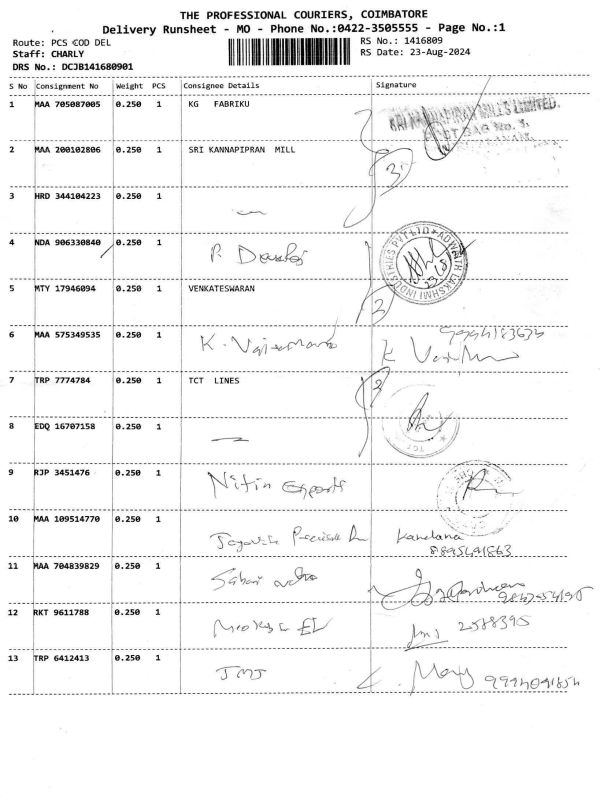 THE PROFESSIONAL COURIERS, COIMBATORE
Delivery Runsheet - MO - Phone No.:0422-3505555 - Page No.:1
Route: PCS COD DEL
RS No.: 1416809
Staff: CHARLY
RS Date: 23-Aug-2024
DRS No.: DCJB141680901
S No Consignment No Weight PCS Consignee Details Signature
1 MAA 705087005 0.250 1 KG FABRIKU
2 MAA 200102806 0.250 1 SRI KANNAPIPRAN MILL
3
3 HRD 344104223 0.250 1
4 NDA 906330840 0.250 1 P.
ADWAITH LAKSHMI INDUSTRIES PVT LTD
5 MTY 17946094 0.250 1 VENKATESWARAN
2
6 MAA 575349535 0.250 1 K.
K
7 TRP 7774784 0.250 1 TCT LINES
2
8 EDQ 16707158 0.250 1
9 RJP 3451476 0.250 1 Nitin Exports
10 MAA 109514770 0.250 1 Kandana
8895491863
11 MAA 704839829 0.250 1 Sabari
12 RKT 9611788 0.250 1 2588395
13 TRP 6412413 0.250 1 JMJ Mary 9994091854